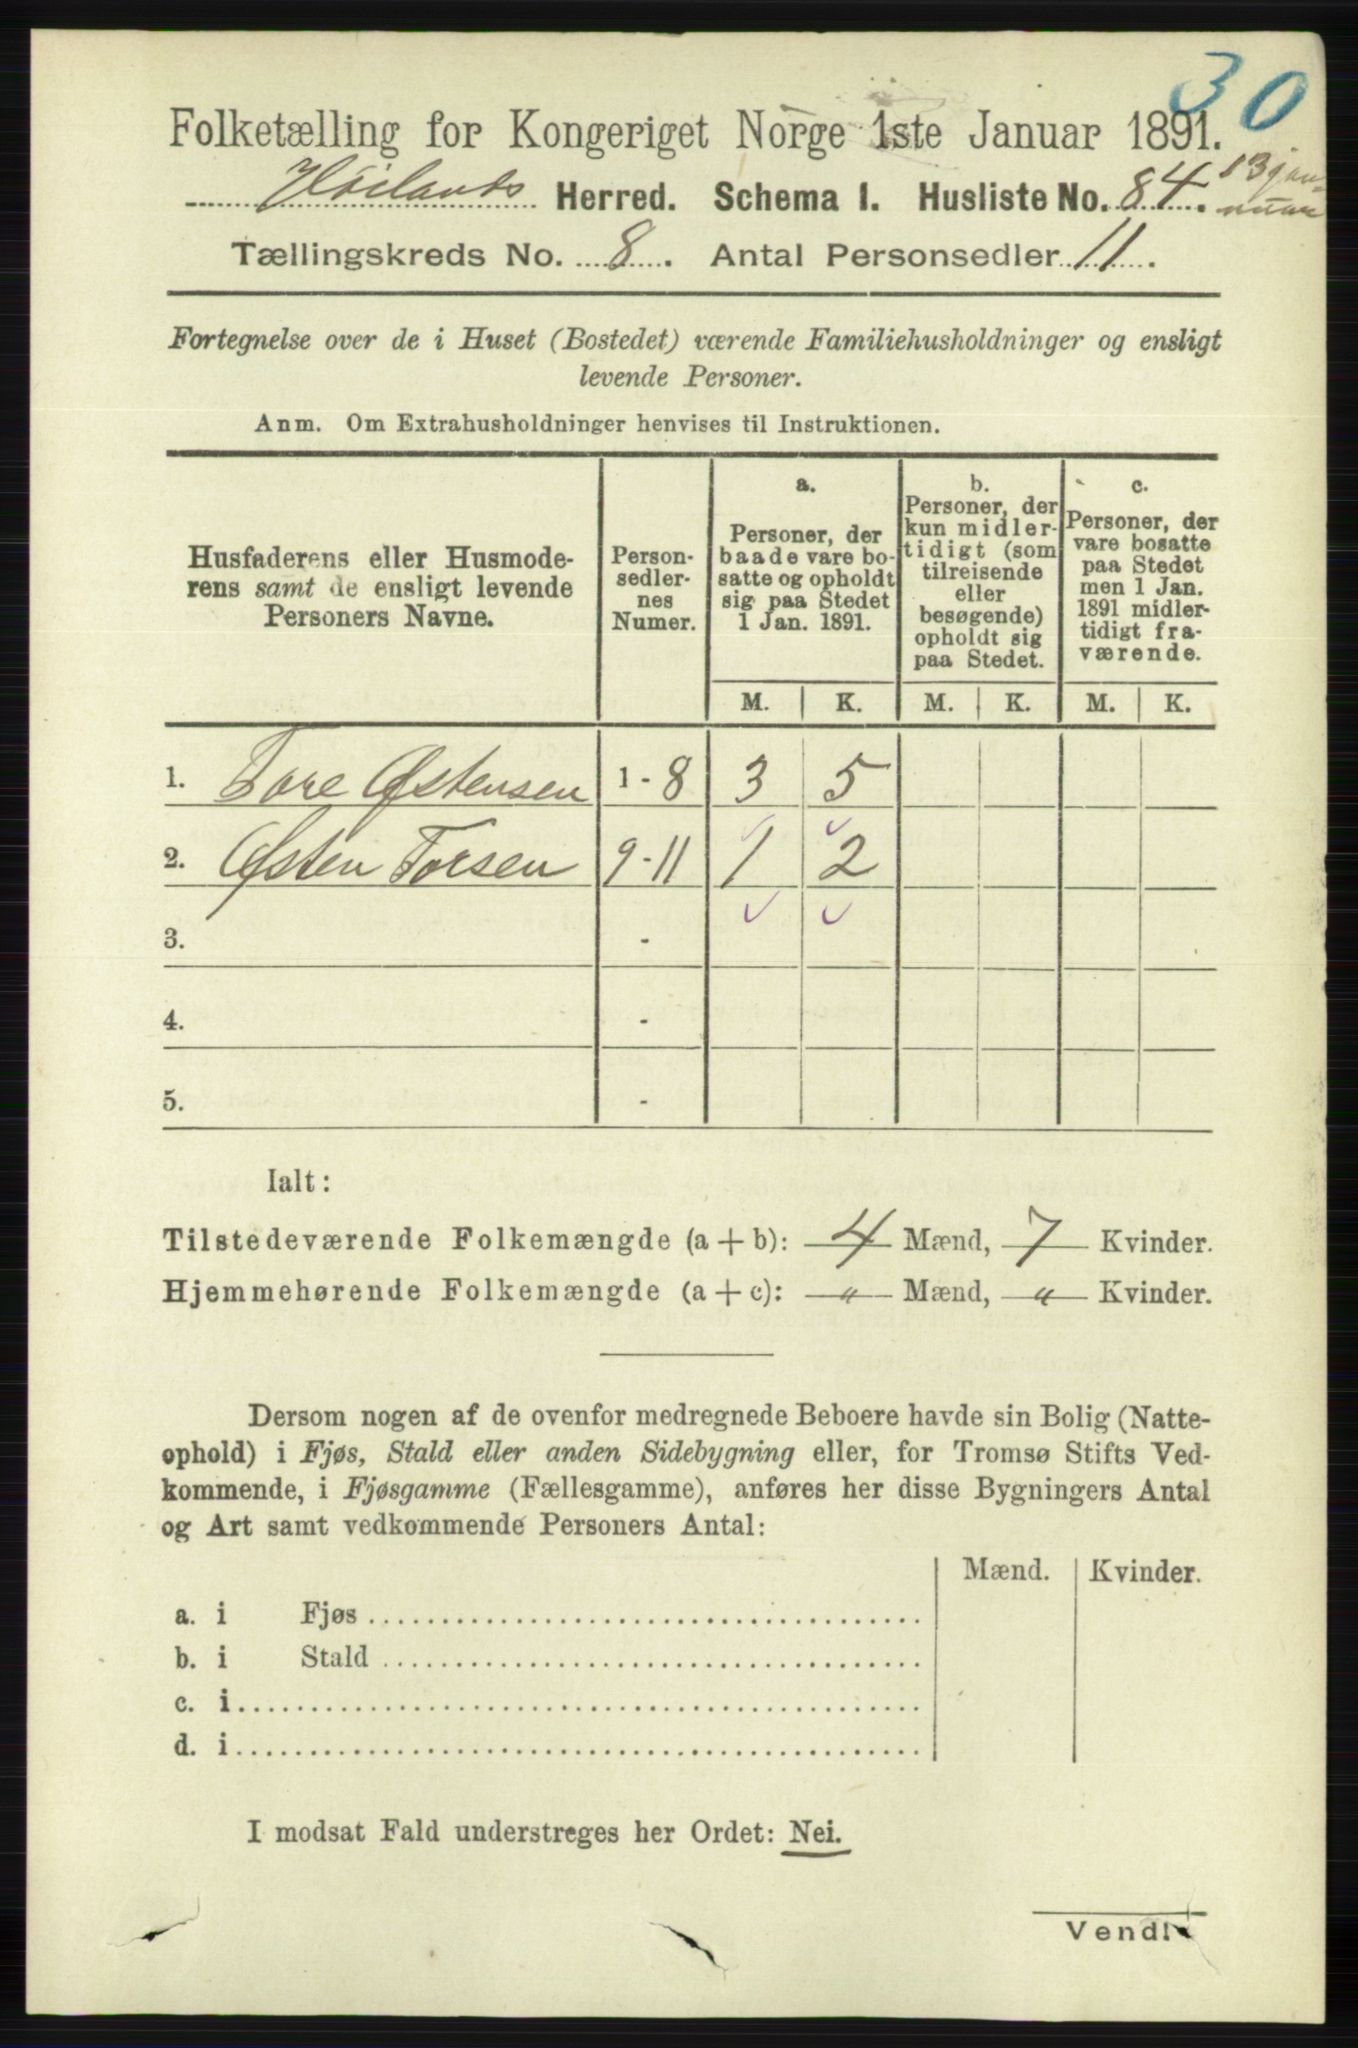 30
Folketælling for Kongeriget Norge 1ste Januar 1891.
Høilands Herred. Schema I. Husliste No. 84. 13 jan-
nuar
Tællingskreds No. 8. Antal Personsedler 11.
Fortegnelse over de i Huset (Bostedet) værende Familiehusholdninger og ensligt
levende Personer.
Anm. Om Extrahusholdninger henvises til Instruktionen.
Husfaderens eller Husmode-
rens samt de ensligt levende
Personers Navne.
Person-
sedler-
nes
Numer.
a.
Personer, der
baade vare bo-
satte og opholdt
sig paa Stedet
1 Jan. 1891.
b.
Personer, der
kun midler-
tidigt (som
tilreisende
eller
besøgende)
opholdt sig
paa Stedet.
c.
Personer, der
vare bosatte
paa Stedet
men 1 Jan.
1891 midler-
tidigt fra-
værende.
M. K. M. K. M. K.
1. Tore Østensen 1 - 8 3 5
2. Østen Torsen 9 - 11 1 2
3. -
4. -
5. -
Ialt:
Tilstedeværende Folkemængde (a + b): 4 Mænd, 7 Kvinder.
Hjemmehørende Folkemængde (a + c): " Mænd, " Kvinder.
Dersom nogen af de ovenfor medregnede Beboere havde sin Bolig (Natte-
ophold) i Fjøs, Stald eller anden Sidebygning eller, for Tromsø Stifts Ved-
kommende, i Fjøsgamme (Fællesgamme), anføres her disse Bygningers Antal
og Art samt vedkommende Personers Antal:
Mænd. Kvinder.
a. i Fjøs
b. i Stald
c. i
d. i
I modsat Fald understreges her Ordet: Nei.
Vend!